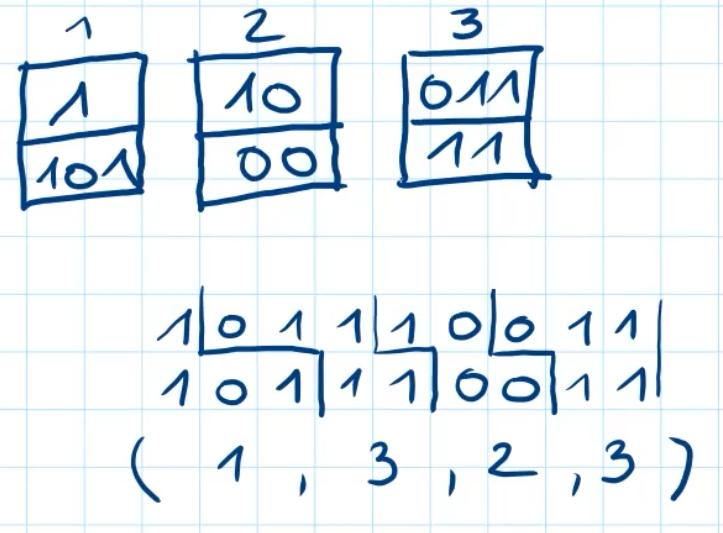 1 2 3
1 10 011
101 00 11
1 0 1 1 1 0 0 1 1
1 0 1 1 1 0 0 1 1
( 1 , 3 , 2 , 3 )